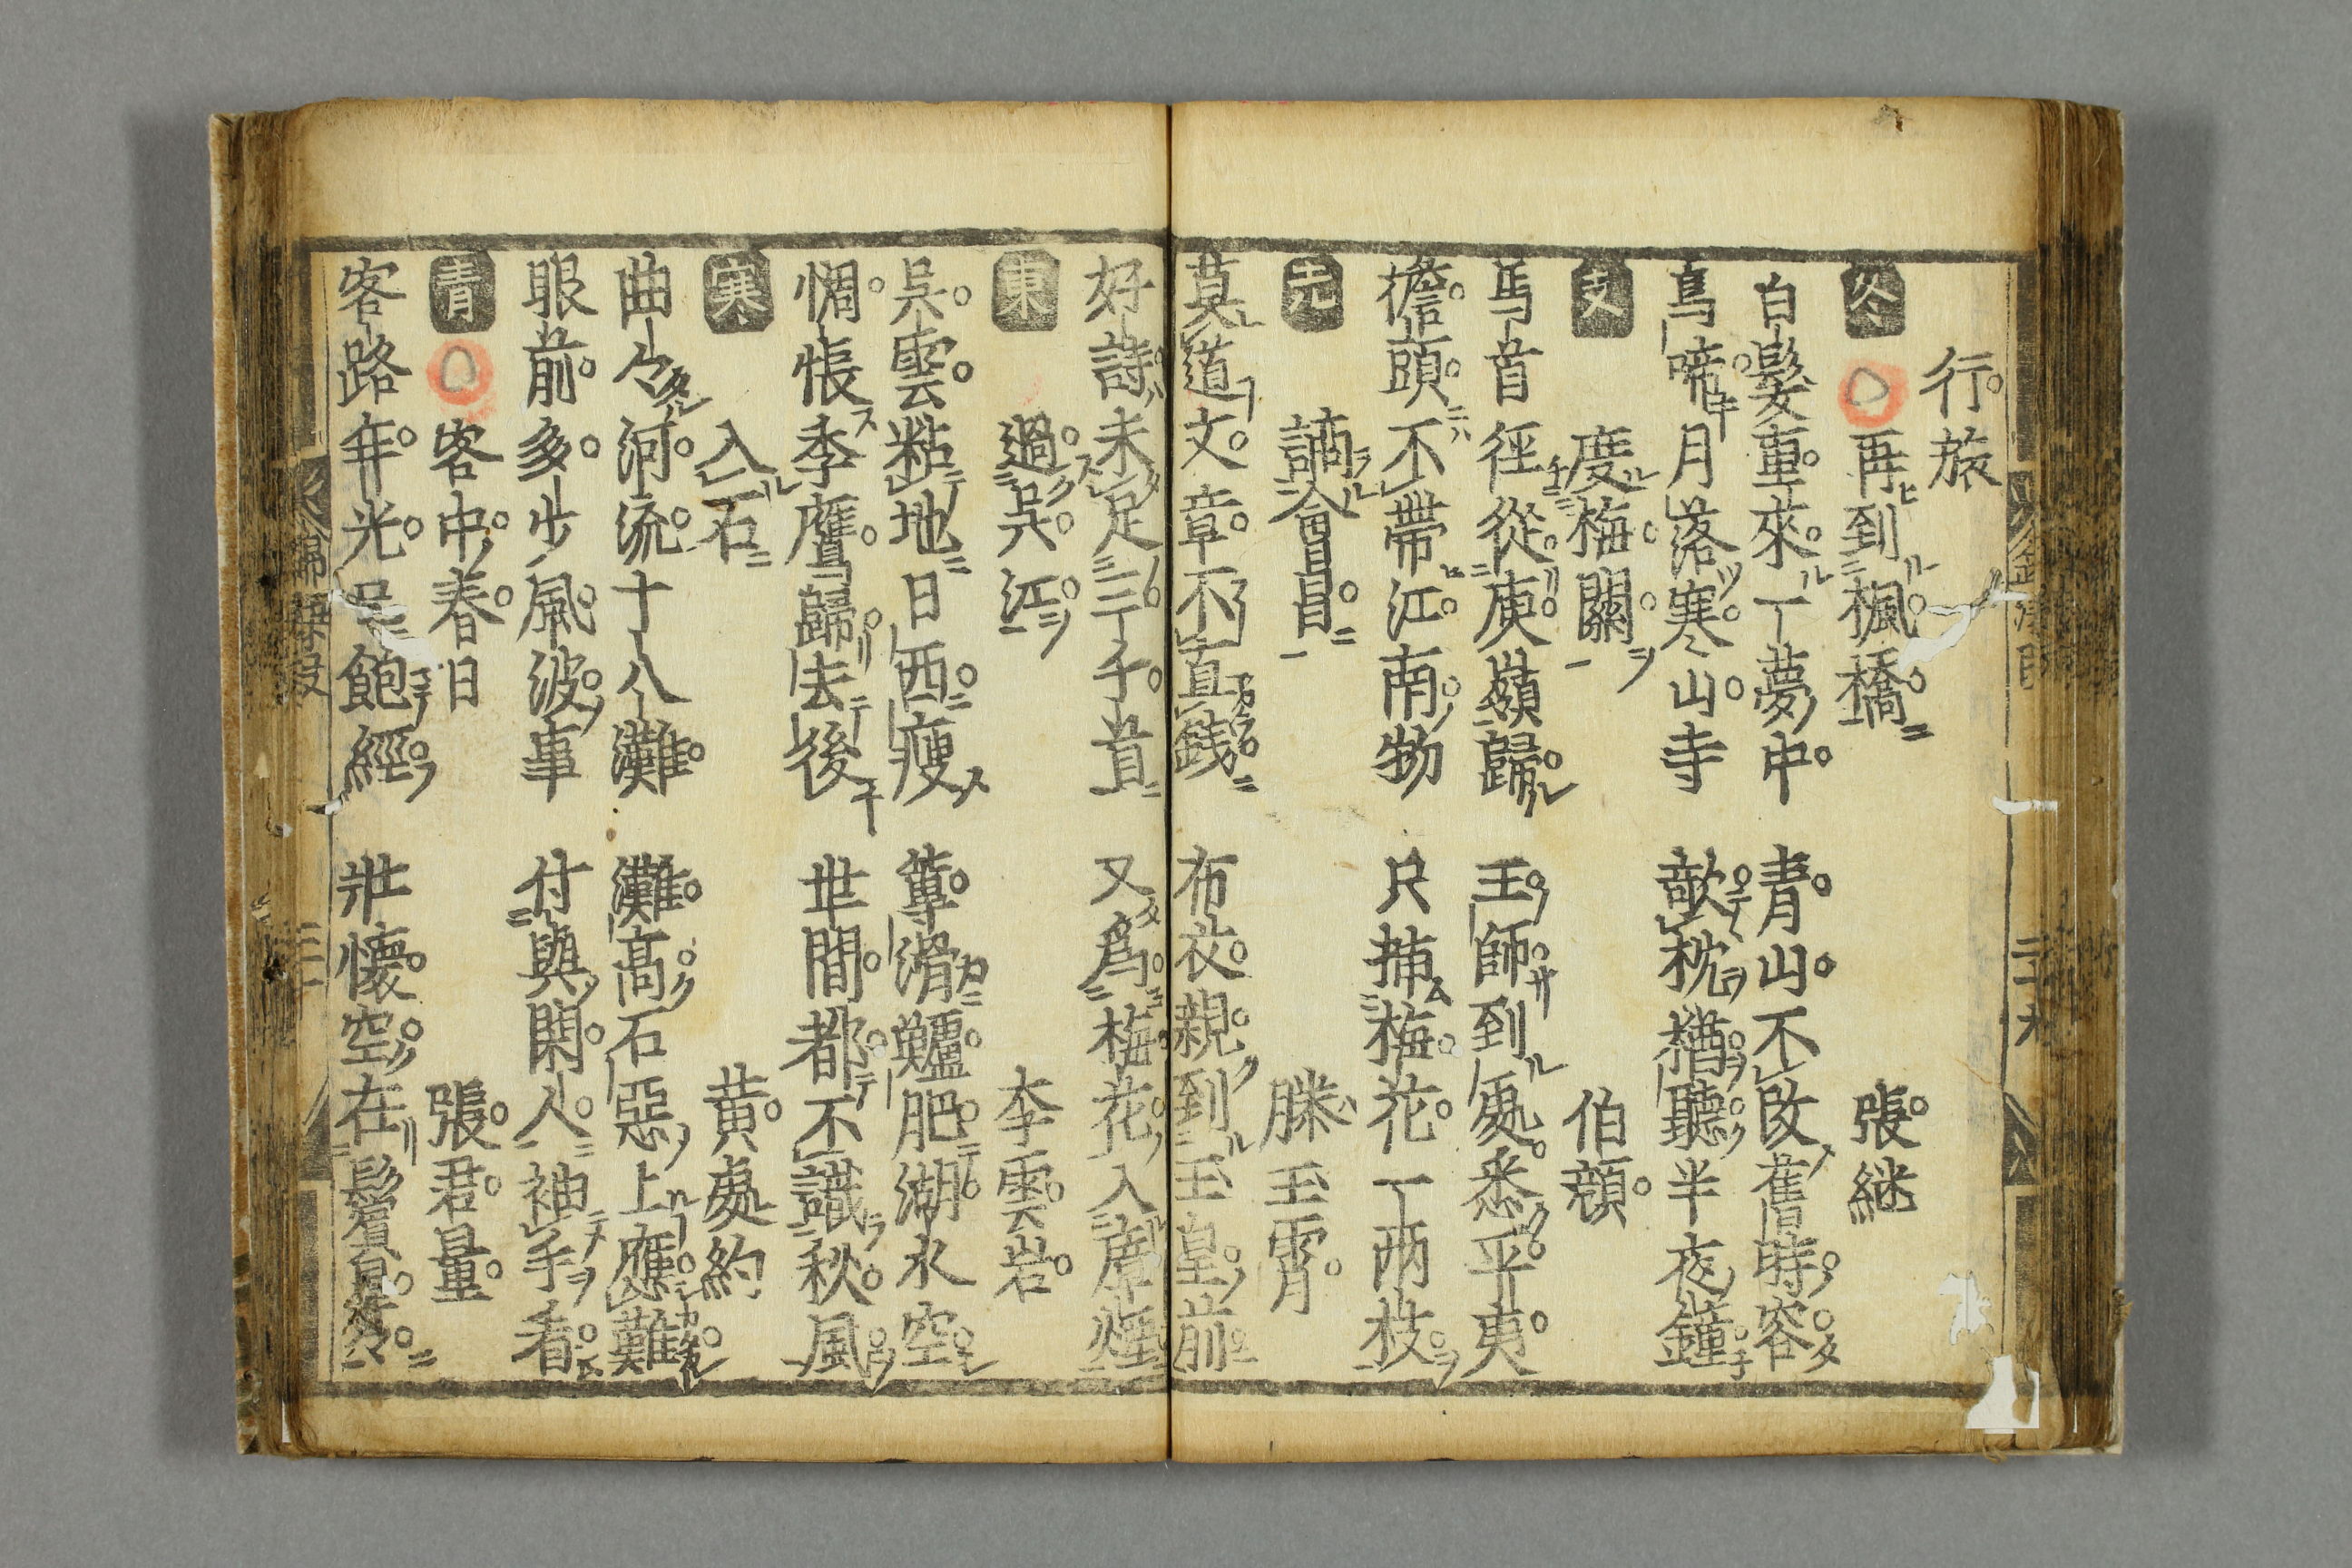 行旅
冬 再到楓橋 張継
白髮重來一夢中 青山不改舊時容
烏啼月落寒山寺 欹枕猶聽半夜鐘
支 度梅關 伯顔
馬首徑從庾嶺歸 王師到處悉平夷
擔頭不帶江南物 只挿梅花一兩枝
先 謫會昌 滕玉霄
莫道文章不直錢 布衣親到玉皇前
好詩未足三千首 又爲梅花入瘴煙
東 過吳江 李雲岩
吳雲粘地日西瘦 蓴滑鱸肥湖水空
惆悵季鷹歸去後 世間都不識秋風
寒 入石 黄處約
曲々河流十八灘 灘高石惡上應難
眼前多少風波事 付與閑人袖手看
青 客中春日 張君量
客路年光飽經 壯懷空在鬢